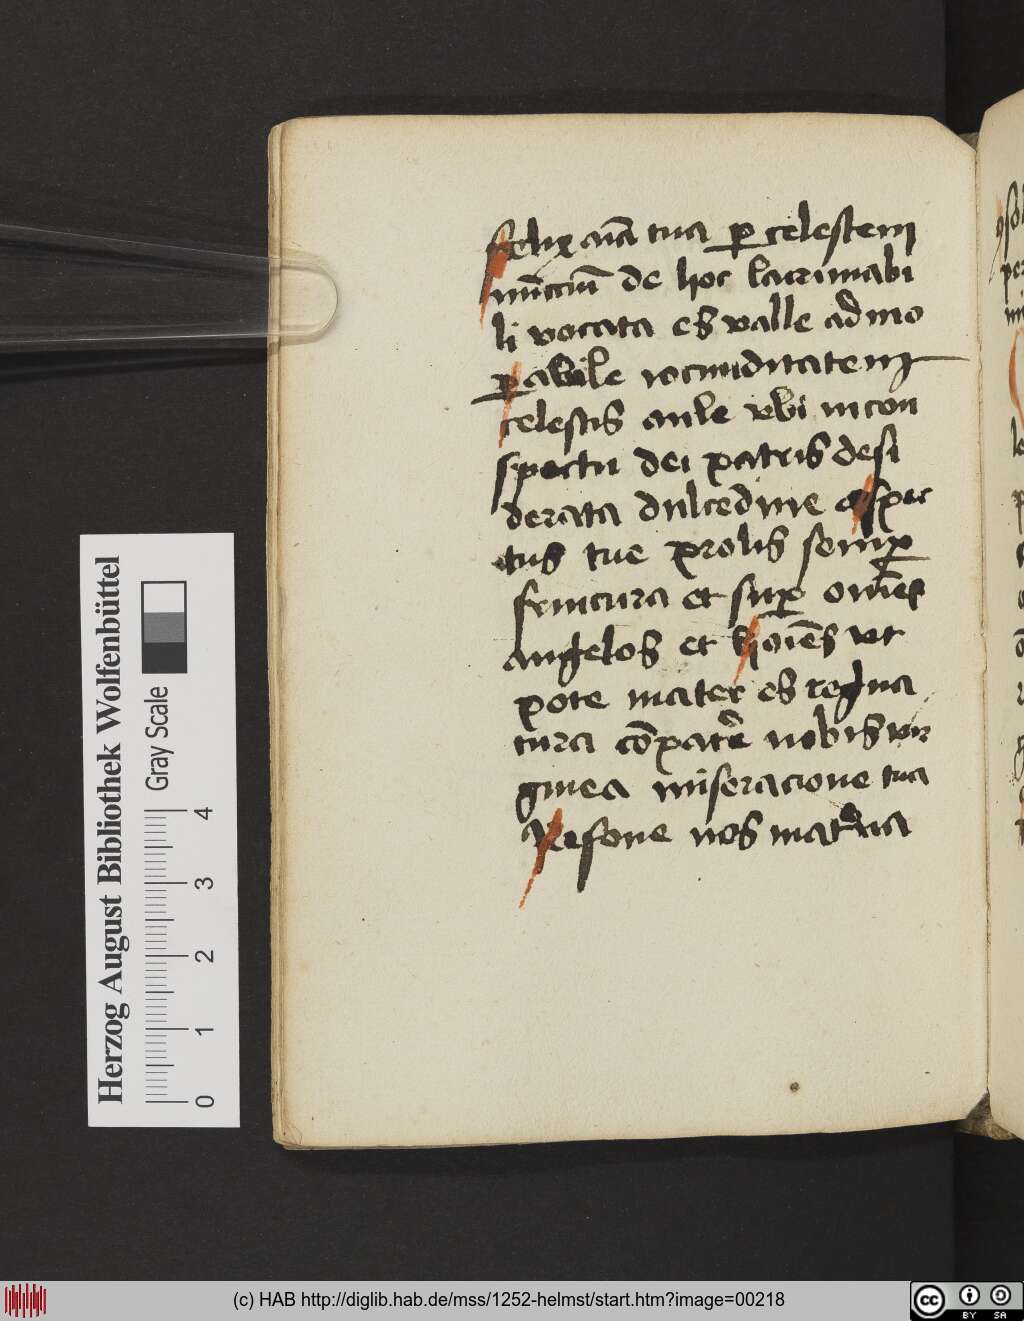 felix aīa tua ꝑ celestem
nūcciū de hoc lacrimabi
li vocata es valle ad ino
ꝑabile iocunditatem
celestis aule vbi in con
spectu dei patris desi
derata dulcedine aspec
tus tue prolis semꝑ
fruitura et suꝑ om̄es
angelos et hoīes vt
pote mater es regna
tura cōpatˀe nobis vir
ginea miseracione tua
persone nos matˀna
Herzog August Bibliothek Wolfenbüttel
Gray Scale
0 1 2 3 4
(c) HAB http://diglib.hab.de/mss/1252-helmst/start.htm?image=00218
cc BY SA